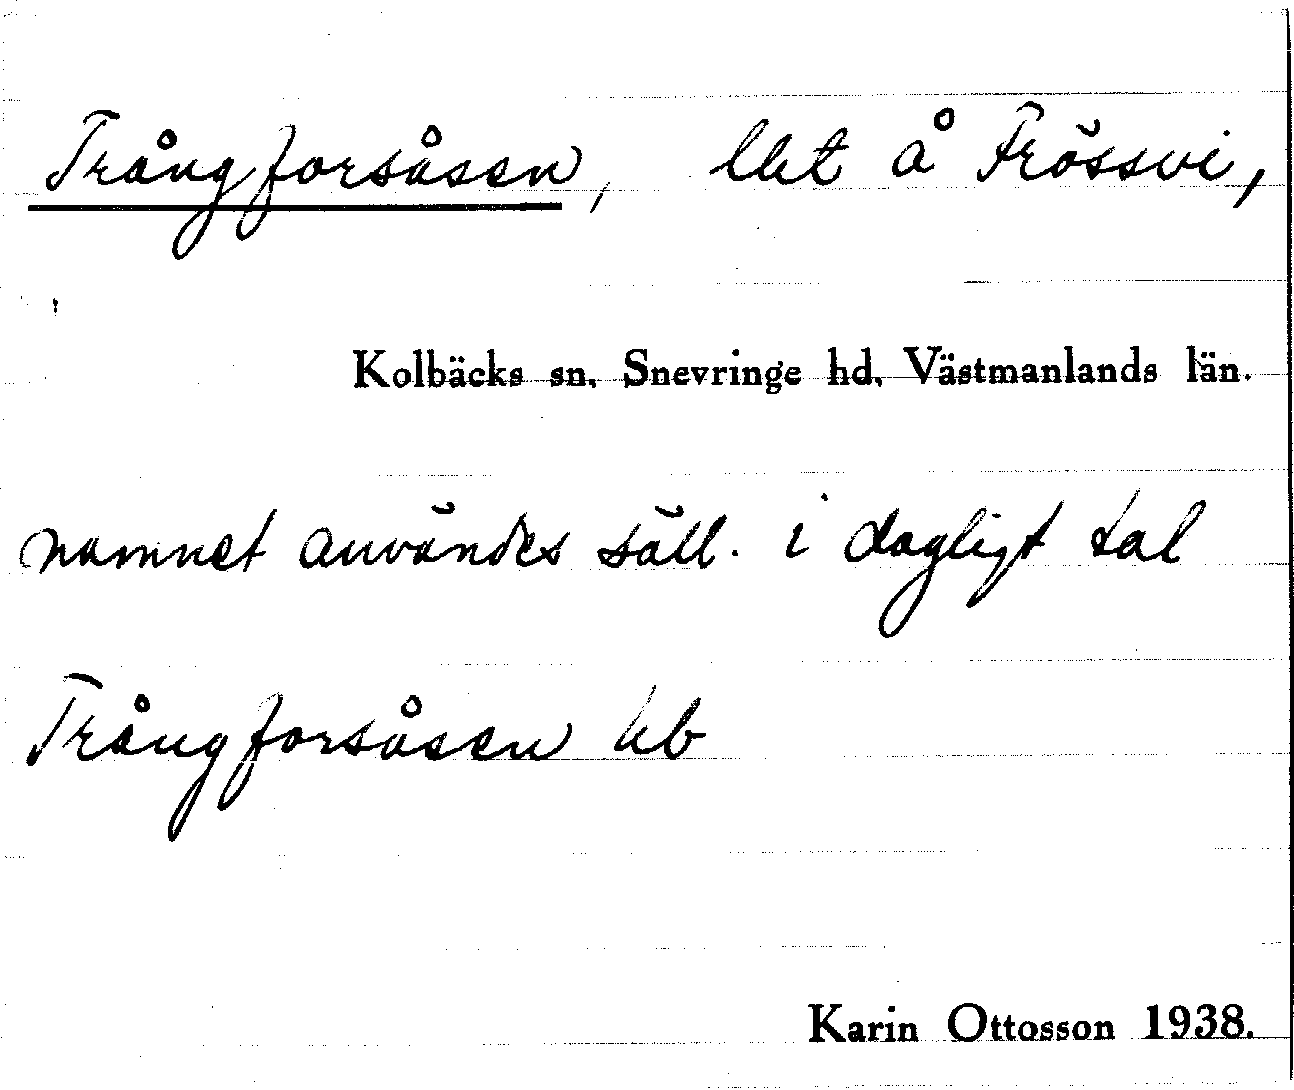 Trångforsåsen, lht å Frössvi,
Kolbäcks sn. Snevringe hd. Västmanlands län.
namnet användes säll. i dagligt tal
Trångforsåsen kb
Karin Ottosson 1938.